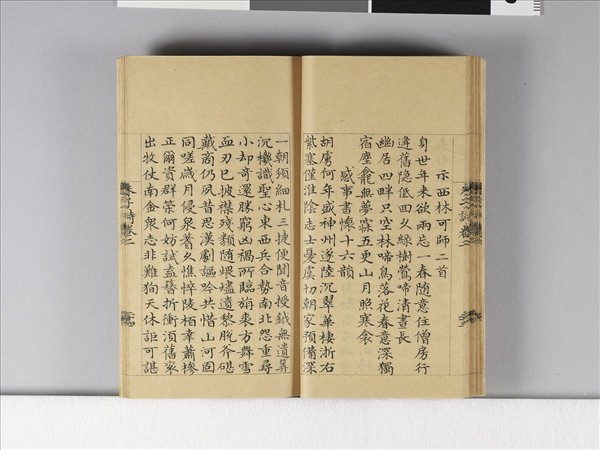 示西林可師二首
身世年来欲兩忘一春随意住僧房行
逢舊隐低回久綠樹鶯啼清晝長
幽居四畔只空林啼鳥落花春意深獨
宿塵龕無夢寐五更山月照寒衾
感事書懷十六韻
胡虜何年盛神州遂陸沉翠華棲浙右
紫塞僅淮陰志士憂虞切朝家預備深
一朝頒細札三捷便聞音授鉞無遺算
沉機識聖心東西兵合勢南北怨重尋
小却奇還勝窮凶禍所臨旃裘方舞雪
血刃已披襟殘類随煨燼遺黎脫斧碪
戴商仍夙昔思漢劇謳吟共惜山河固
同嗟歲月侵泉蓍久憔悴陵栢幸蕭摻
正爾資群策何妨試盍簪折衝須舊衮
出牧仗南金衆志非難徇天休詎可諶